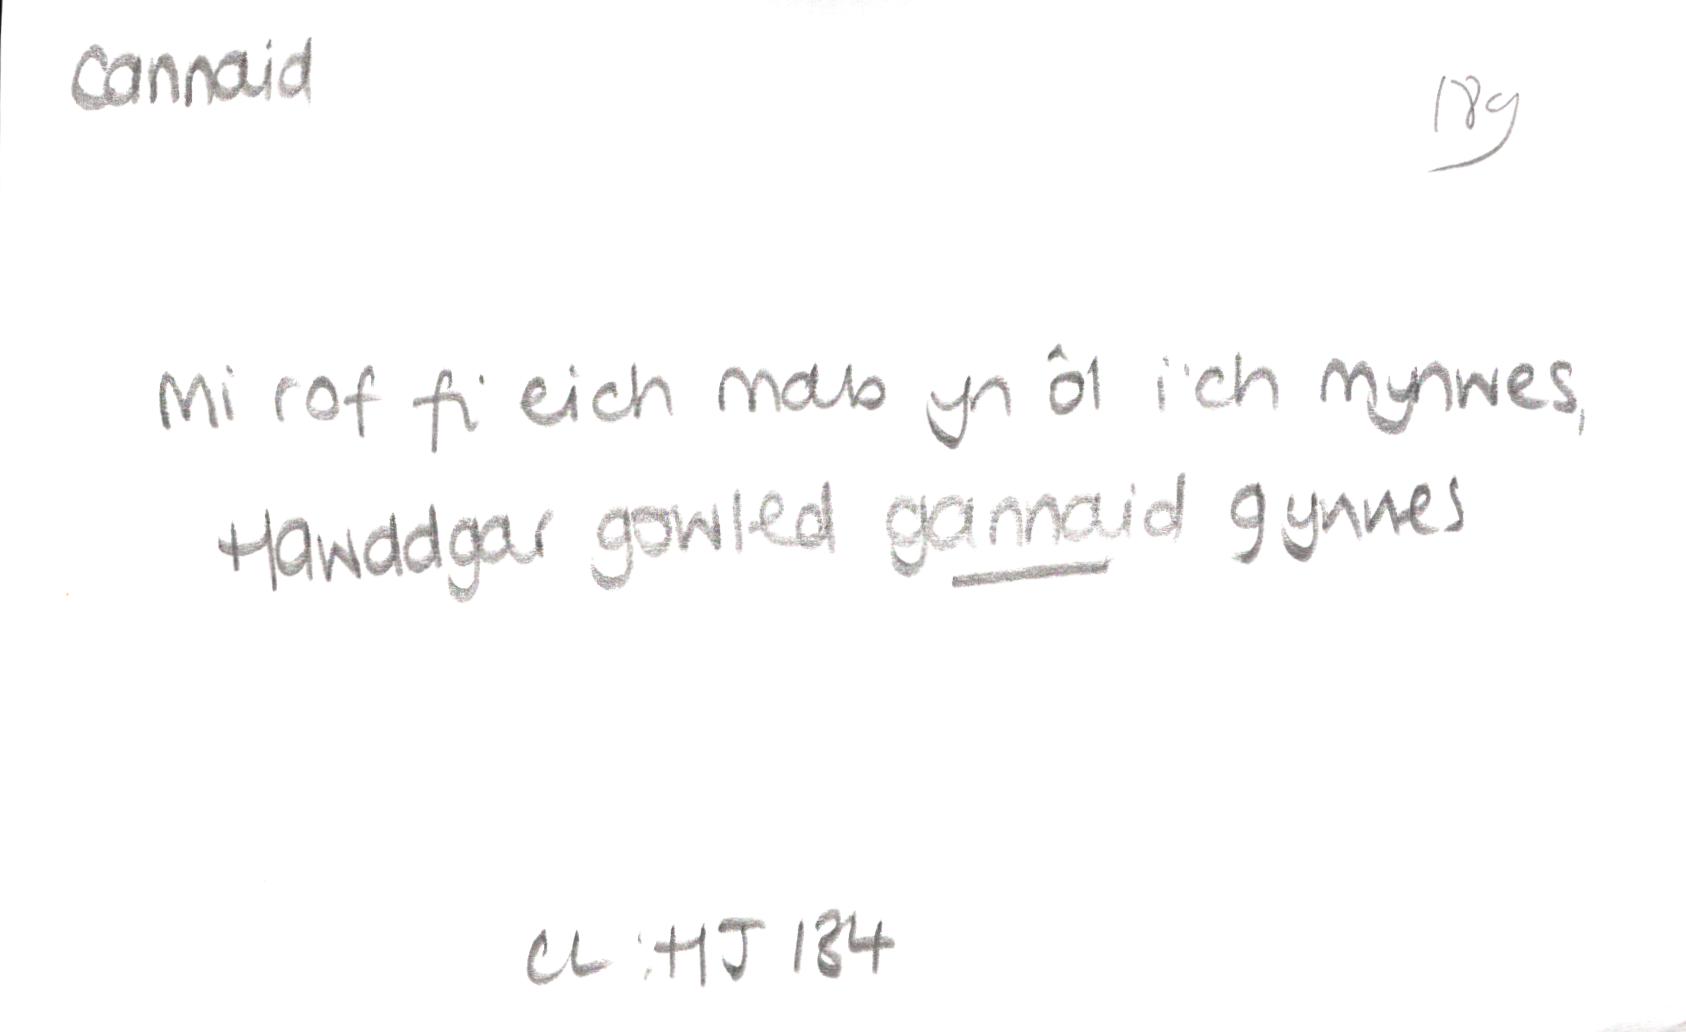 Cannaid
18g
Mi rof fi eich mab yn ôl i'ch mynwes,
Hawddgar gowled gannaid gynnes
CL : HJ 134